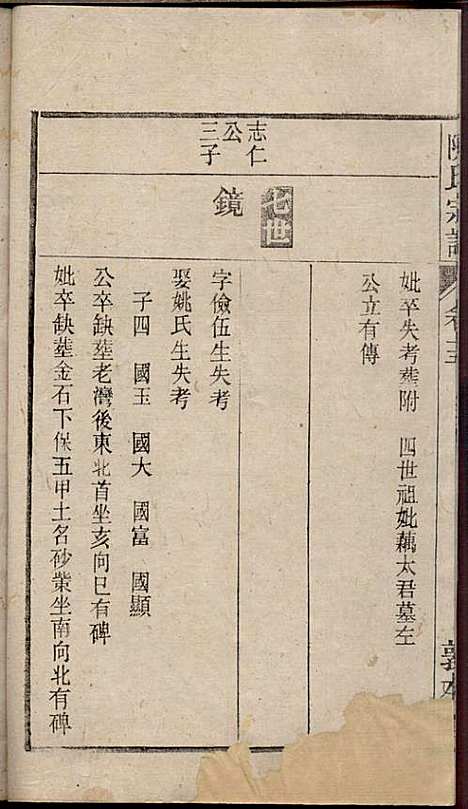 陳氏宗譜
卷十三
敦本
妣卒失考葬附 四世祖妣藕太君墓左
公立有傳
志仁
公
三子
名世
鏡
字儉伍生失考
娶姚氏生失考
子四 國玉 國大 國富 國顯
公卒缺葬老灣後東北首坐亥向巳有碑
妣卒缺葬金石下保五甲土名砂業坐南向北有碑